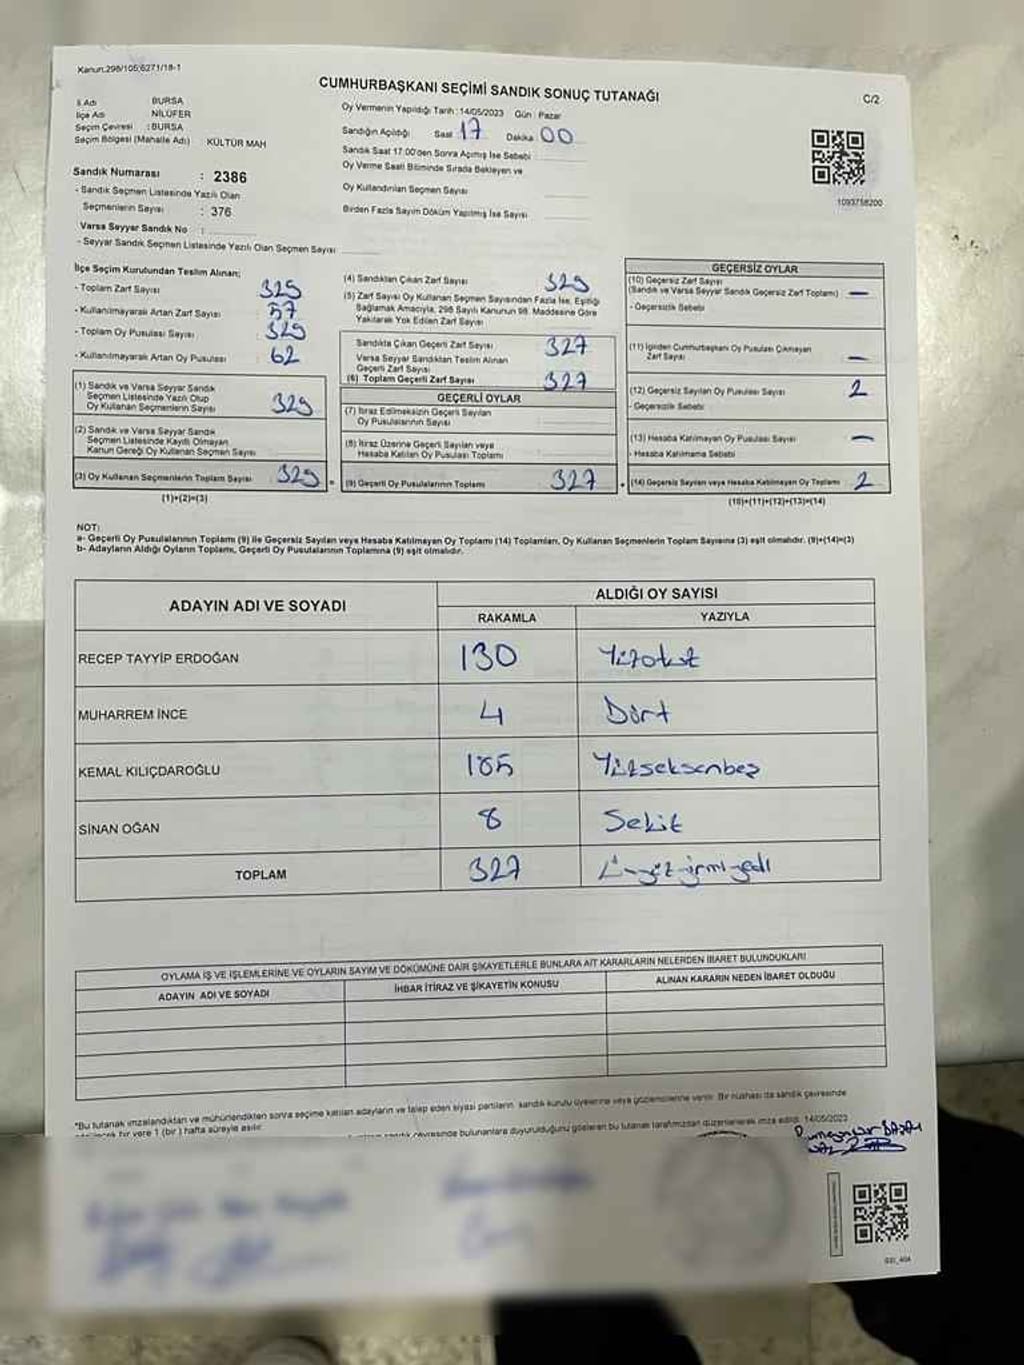 Kanun:298/105;6271/18-1
CUMHURBAŞKANI SEÇİMİ SANDIK SONUÇ TUTANAĞI
C/2
İl Adı BURSA
İlçe Adı NİLÜFER
Seçim Çevresi : BURSA
Seçim Bölgesi (Mahalle Adı) KÜLTÜR MAH
Oy Vermenin Yapıldığı Tarih : 14/05/2023 Gün : Pazar
Sandığın Açıldığı Saat 17 Dakika 00
Sandık Saat 17:00'den Sonra Açılmış İse Sebebi
Oy Verme Saati Bitiminde Sırada Bekleyen ve
Oy Kullandırılan Seçmen Sayısı
Birden Fazla Sayım Döküm Yapılmış İse Sayısı
1093758200
Sandık Numarası : 2386
- Sandık Seçmen Listesinde Yazılı Olan
Seçmenlerin Sayısı : 376
Varsa Seyyar Sandık No :
- Seyyar Sandık Seçmen Listesinde Yazılı Olan Seçmen Sayısı
İlçe Seçim Kurulundan Teslim Alınan;
- Toplam Zarf Sayısı : 329
- Kullanılmayarak Artan Zarf Sayısı : 57
- Toplam Oy Pusulası Sayısı : 329
- Kullanılmayarak Artan Oy Pusulası : 62
(1) Sandık ve Varsa Seyyar Sandık
Seçmen Listesinde Yazılı Olup
Oy Kullanan Seçmenlerin Sayısı 329
(2) Sandık ve Varsa Seyyar Sandık
Seçmen Listesinde Kayıtlı Olmayan
Kanun Gereği Oy Kullanan Seçmen Sayısı
(3) Oy Kullanan Seçmenlerin Toplam Sayısı 329
(1)+(2)=(3)
(4) Sandıktan Çıkan Zarf Sayısı 329
(5) Zarf Sayısı Oy Kullanan Seçmen Sayısından Fazla İse, Eşitliği
Sağlamak Amacıyla, 298 Sayılı Kanunun 98. Maddesine Göre
Yakılarak Yok Edilen Zarf Sayısı
Sandıkta Çıkan Geçerli Zarf Sayısı 327
Varsa Seyyar Sandıktan Teslim Alınan
Geçerli Zarf Sayısı
(6) Toplam Geçerli Zarf Sayısı 327
GEÇERLİ OYLAR
(7) İtiraz Edilmeksizin Geçerli Sayılan
Oy Pusulalarının Sayısı
(8) İtiraz Üzerine Geçerli Sayılan veya
Hesaba Katılan Oy Pusulası Toplamı
(9) Geçerli Oy Pusulalarının Toplamı 327
GEÇERSİZ OYLAR
(10) Geçersiz Zarf Sayısı
(Sandık ve Varsa Seyyar Sandık Geçersiz Zarf Toplamı) —
- Geçersizlik Sebebi
(11) İçinden Cumhurbaşkanı Oy Pusulası Çıkmayan
Zarf Sayısı —
(12) Geçersiz Sayılan Oy Pusulası Sayısı 2
- Geçersizlik Sebebi
(13) Hesaba Katılmayan Oy Pusulası Sayısı —
- Hesaba Katılmama Sebebi
(14) Geçersiz Sayılan veya Hesaba Katılmayan Oy Toplamı 2
(10)+(11)+(12)+(13)=(14)
NOT:
a- Geçerli Oy Pusulalarının Toplamı (9) ile Geçersiz Sayılan veya Hesaba Katılmayan Oy Toplamı (14) Toplamları, Oy Kullanan Seçmenlerin Toplam Sayısına (3) eşit olmalıdır. (9)+(14)=(3)
b- Adayların Aldığı Oyların Toplamı, Geçerli Oy Pusulalarının Toplamına (9) eşit olmalıdır.
ADAYIN ADI VE SOYADI ALDIĞI OY SAYISI
RAKAMLA YAZIYLA
RECEP TAYYİP ERDOĞAN 130 Yüzotuz
MUHARREM İNCE 4 Dört
KEMAL KILIÇDAROĞLU 185 Yüzseksenbeş
SİNAN OĞAN 8 Sekiz
TOPLAM 327 Üçyüzyirmiyedi
OYLAMA İŞ VE İŞLEMLERİNE VE OYLARIN SAYIM VE DÖKÜMÜNE DAİR ŞİKAYETLERLE BUNLARA AİT KARARLARIN NELERDEN İBARET BULUNDUKLARI
ADAYIN ADI VE SOYADI İHBAR İTİRAZ VE ŞİKAYETİN KONUSU ALINAN KARARIN NEDEN İBARET OLDUĞU
*Bu tutanak imzalandıktan ve mühürlendikten sonra seçime katılan adayların ve talep eden siyasi partilerin, sandık kurulu üyelerine veya gözlemcilerine verilir. Bir nüshası da sandık çevresinde
bir yere 1 (bir) hafta süreyle asılır.
sandık çevresinde bulunanlara duyurulduğunu gösteren bu tutanak tarafımızdan düzenlenerek imza edildi. 14/05/2023